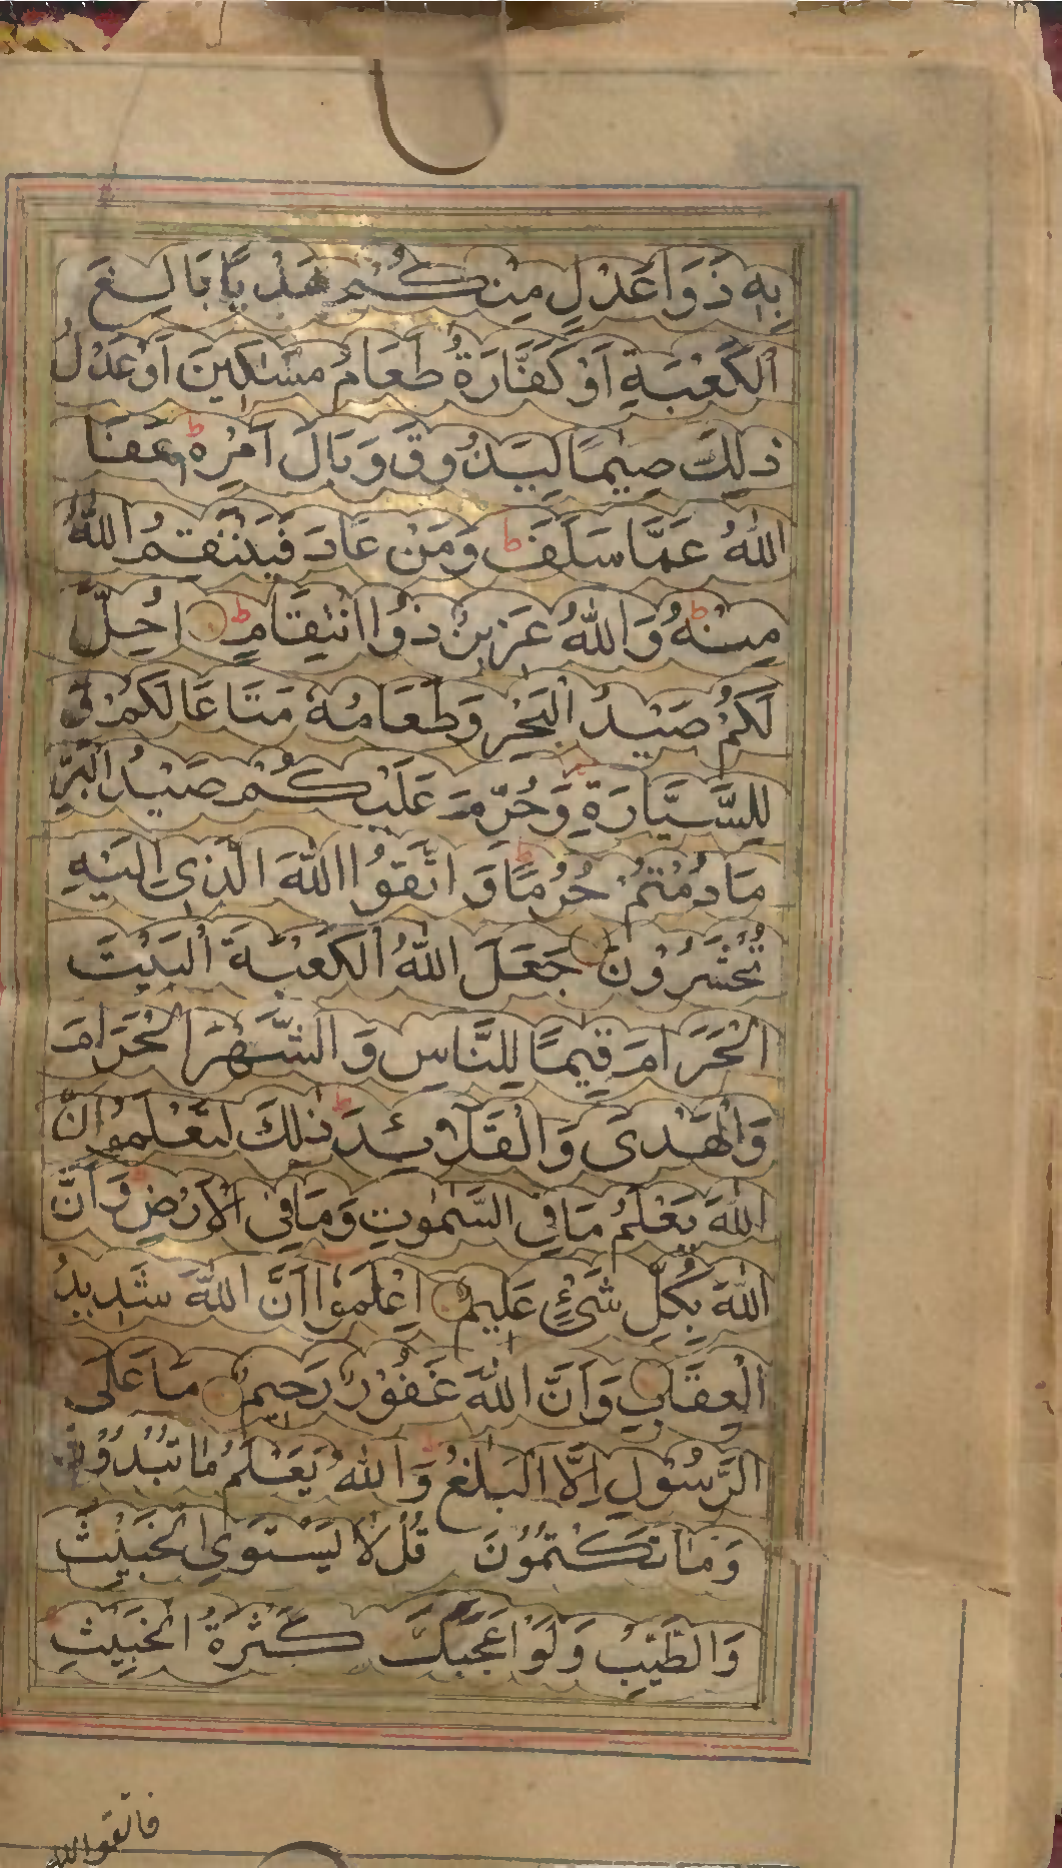 بِهٖ ذَوَا عَدْلٍ مِنْكُمْ هَدْيًا بَالِغَ
الْكَعْبَةِ اَوْ كَفَّارَةُ طَعَامُ مَسٰكِينَ اَوْ عَدْلُ
ذٰلِكَ صِيٰمًا لِيَذُوقَ وَبَالَ اَمْرِهٖ ط عَفَا
اللّٰهُ عَمَّا سَلَفَ ط وَمَنْ عَادَ فَيَنْتَقِمُ اللّٰهُ
مِنْهُ ط وَاللّٰهُ عَزِيزٌ ذُوا انْتِقَامٍ ط اُحِلَّ
لَكُمْ صَيْدُ الْبَحْرِ وَطَعَامُهٗ مَتَاعًا لَكُمْ فِي
لِلسَّيَّارَةِ وَحُرِّمَ عَلَيْكُمْ صَيْدُ الْبَرِّ
مَا دُمْتُمْ حُرُمًا ط وَ اتَّقُوا اللّٰهَ الَّذِي اِلَيْهِ
تُحْشَرُوْنَ جَعَلَ اللّٰهُ الْكَعْبَةَ الْبَيْتَ
الْحَرَامَ قِيٰمًا لِلنَّاسِ وَ الشَّهْرَ الْحَرَامَ
وَالْهَدْىَ وَالْقَلَآئِدَ ط ذٰلِكَ لِتَعْلَمُوا اَنَّ
اللّٰهَ يَعْلَمُ مَا فِي السَّمٰوٰتِ وَمَا فِي الْاَرْضِ وَاَنَّ
اللّٰهَ بِكُلِّ شَيْءٍ عَلِيمٌ اِعْلَمُوْا اَنَّ اللّٰهَ شَدِيدُ
الْعِقَابِ وَاَنَّ اللّٰهَ غَفُوْرٌ رَحِيمٌ مَا عَلَى
الرَّسُوْلِ اِلَّا الْبَلٰغُ وَاللّٰهُ يَعْلَمُ مَا تُبْدُوْنَ
وَمَا تَكْتُمُوْنَ قُلْ لَا يَسْتَوِي الْخَبِيْثُ
وَالطَّيِّبُ وَلَوْ اَعْجَبَكَ كَثْرَةُ الْخَبِيْثِ
فاتقوا الله